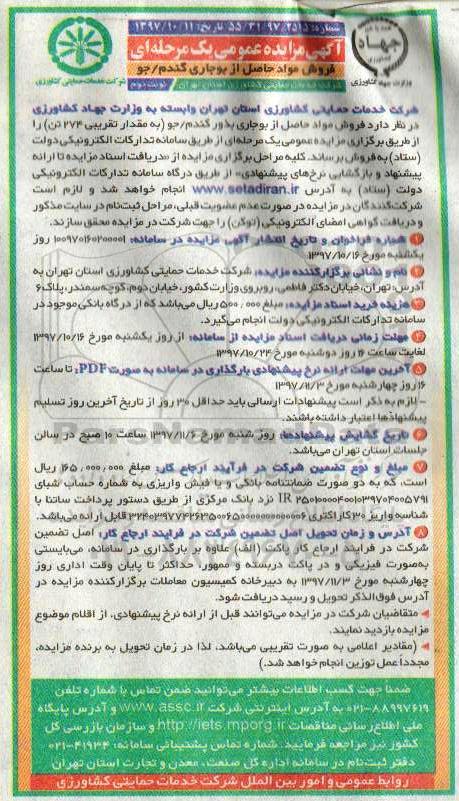 شماره: ۵۵/۳۱/۹۷/۲۵۱۵ تاریخ: ۱۳۹۷/۱۰/۱۱
آگهی مزایده عمومی یک مرحله‌ای
فروش مواد حاصل از بوجاری گندم/جو
شرکت خدمات حمایتی کشاورزی استان تهران
نوبت دوم
جهاد
وزارت جهاد کشاورزی
شرکت خدمات حمایتی کشاورزی
شرکت خدمات حمایتی کشاورزی استان تهران وابسته به وزارت جهاد کشاورزی
در نظر دارد فروش مواد حاصل از بوجاری بذور گندم/جو (به مقدار تقریبی ۲۷۴ تن) را
از طریق برگزاری مزایده عمومی یک مرحله‌ای از طریق سامانه تدارکات الکترونیکی دولت
(ستاد) به فروش برساند. کلیه مراحل برگزاری مزایده از «دریافت اسناد مزایده تا ارائه
پیشنهاد و بازگشایی نرخ‌های پیشنهادی» از طریق درگاه سامانه تدارکات الکترونیکی
دولت (ستاد) به آدرس www.setadiran.ir انجام خواهد شد و لازم است
شرکت‌کنندگان در مزایده در صورت عدم عضویت قبلی، مراحل ثبت‌نام در سایت مذکور
و دریافت گواهی امضای الکترونیکی (توکن) را جهت شرکت در مزایده محقق سازند.
۱ شماره فراخوان و تاریخ انتشار آگهی مزایده در سامانه: ۱۰۰۹۷۰۱۶۰۲۰۰۰۰۱ روز
یکشنبه مورخ ۱۳۹۷/۱۰/۱۶
۲ نام و نشانی برگزارکننده مزایده: شرکت خدمات حمایتی کشاورزی استان تهران به
آدرس: تهران، خیابان دکتر فاطمی، روبروی وزارت کشور، خیابان دوم، کوچه سمندر، پلاک۶
۳ هزینه خرید اسناد مزایده: مبلغ ۵۰۰/۰۰۰ ریال می‌باشد که از درگاه بانکی موجود در
سامانه تدارکات الکترونیکی دولت انجام می‌گیرد.
۴ مهلت زمانی دریافت اسناد مزایده از سامانه: از روز یکشنبه مورخ ۱۳۹۷/۱۰/۱۶
لغایت ساعت ۱۶ روز دوشنبه مورخ ۱۳۹۷/۱۰/۲۴
۵ آخرین مهلت ارائه نرخ پیشنهادی بارگذاری در سامانه به صورت PDF: تا ساعت
۱۶ روز چهارشنبه مورخ ۱۳۹۷/۱۱/۳
- لازم به ذکر است پیشنهادات ارسالی باید حداقل ۳۰ روز از تاریخ آخرین روز تسلیم
پیشنهادها اعتبار داشته باشند.
۶ تاریخ گشایش پیشنهادها: روز شنبه مورخ ۱۳۹۷/۱۱/۶ ساعت ۱۰ صبح در سالن
جلسات استان تهران می‌باشد.
۷ مبلغ و نوع تضمین شرکت در فرآیند ارجاع کار: مبلغ ۱۶۵,۰۰۰,۰۰۰ ریال
است، که به دو صورت ضمانتنامه بانکی و یا فیش واریزی به شماره حساب شبای
نزد بانک مرکزی از طریق دستور پرداخت ساتنا با
شناسه واریز ۳۰ کاراکتری قابل ارائه می‌باشد.
۸ آدرس و زمان تحویل اصل تضمین شرکت در فرایند ارجاع کار: اصل تضمین
شرکت در فرایند ارجاع کار پاکت (الف) علاوه بر بارگذاری در سامانه، می‌بایستی
به‌صورت فیزیکی و در پاکت دربسته و ممهور، حداکثر تا پایان وقت اداری روز
چهارشنبه مورخ ۱۳۹۷/۱۱/۳ به دبیرخانه کمیسیون معاملات برگزارکننده مزایده در
آدرس فوق‌الذکر تحویل و رسید دریافت شود.
متقاضیان شرکت در مزایده می‌توانند قبل از ارائه نرخ پیشنهادی، از اقلام موضوع
مزایده بازدید نمایند.
(مقادیر اعلامی به صورت تقریبی می‌باشد، لذا در زمان تحویل به برنده مزایده،
مجدداً عمل توزین انجام خواهد شد.)
ضمنا جهت کسب اطلاعات بیشتر می‌توانید ضمن تماس با شماره تلفن
۰۲۱-۸۸۹۹۷۶۱۹ به آدرس اینترنتی شرکت www.assc.ir و آدرس پایگاه
ملی اطلاع رسانی مناقصات http://iets.mporg.ir و سازمان بازرسی کل
کشور نیز مراجعه فرمایید. شماره تماس پشتیبانی سامانه: ۰۲۱-۴۱۹۳۴
دفتر ثبت‌نام در سامانه اداره کل صنعت، معدن و تجارت استان تهران
روابط عمومی و امور بین الملل شرکت خدمات حمایتی کشاورزی